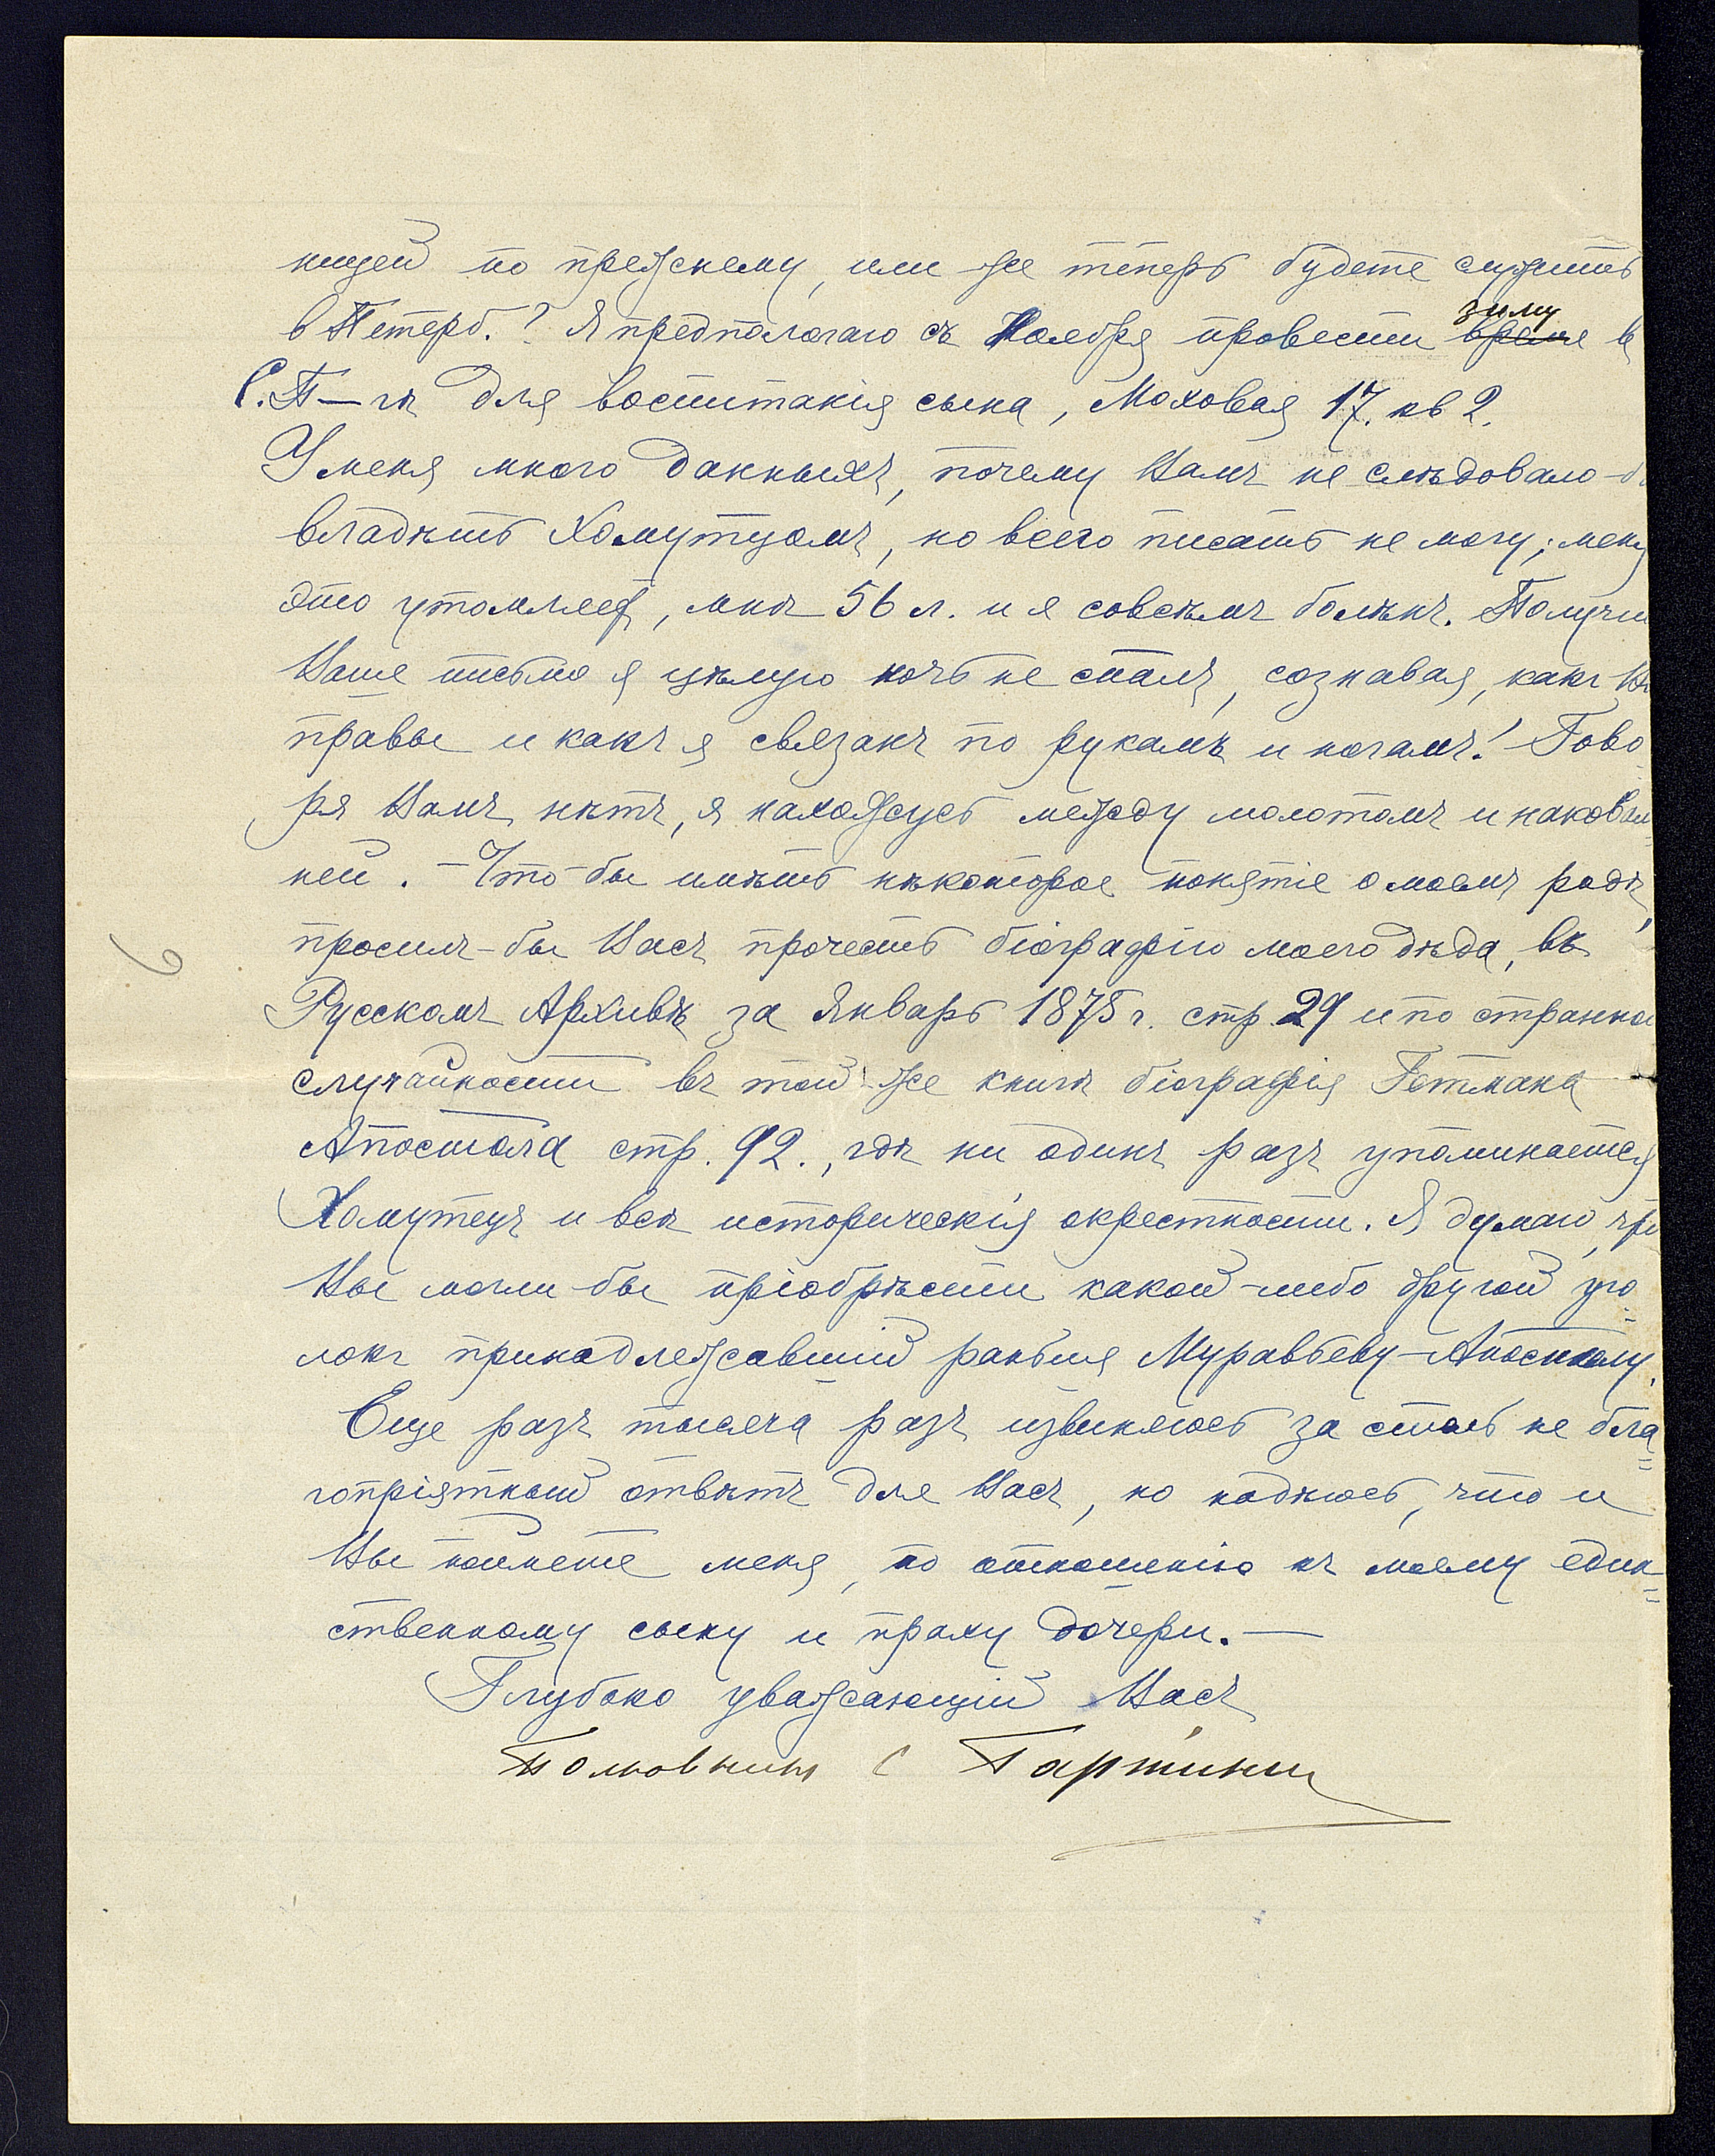 ницей по прежнему, или же теперь будете служить
в Петерб.? Я предполагаю съ Ноября провести время зиму в
С. П-гѣ для воспитанія сына, Моховая 17. кв 2.
У меня много данныхъ, почему Вамъ не слѣдовало-б
владѣть Хомутцомъ, но всего писать не могу; меня
это утомляет, мнѣ 56 л. и я совсѣмъ боленъ. Получи
Ваше письмо я цѣлую ночь не спалъ, сознавая, какъ Вы
правы и какъ я связанъ по рукамъ и ногамъ! Гово-
ря Вамъ нѣтъ, я нахожусь между молотомъ и наковал-
ней. - Что-бы имѣть нѣкоторое понятіе о моемъ родѣ,
просилъ-бы Васъ прочесть біографію моего дѣда, въ
Русскомъ Архивѣ за Январь 1875 г. стр. 29 и по странной
случайности въ той-же книгѣ біографія Гетмана
Апостола стр. 92., гдѣ ни одинъ разъ упоминается
Хомутецъ и всѣ историческія окрестности. Я думаю, что
Вы могли-бы пріобрѣсти какой-либо другой уго-
локъ принадлежавшій раньше Муравьеву-Апостолу.
Еще разъ тысяча разъ извиняюсь за столь не бла=
гопріятный отвѣтъ для Васъ, но надѣюсь, что и
Вы поймете меня, по отношенію къ моему един=
ственному сыну и праху дочери. —
Глубоко уважающій Васъ
Полковникъ С
6